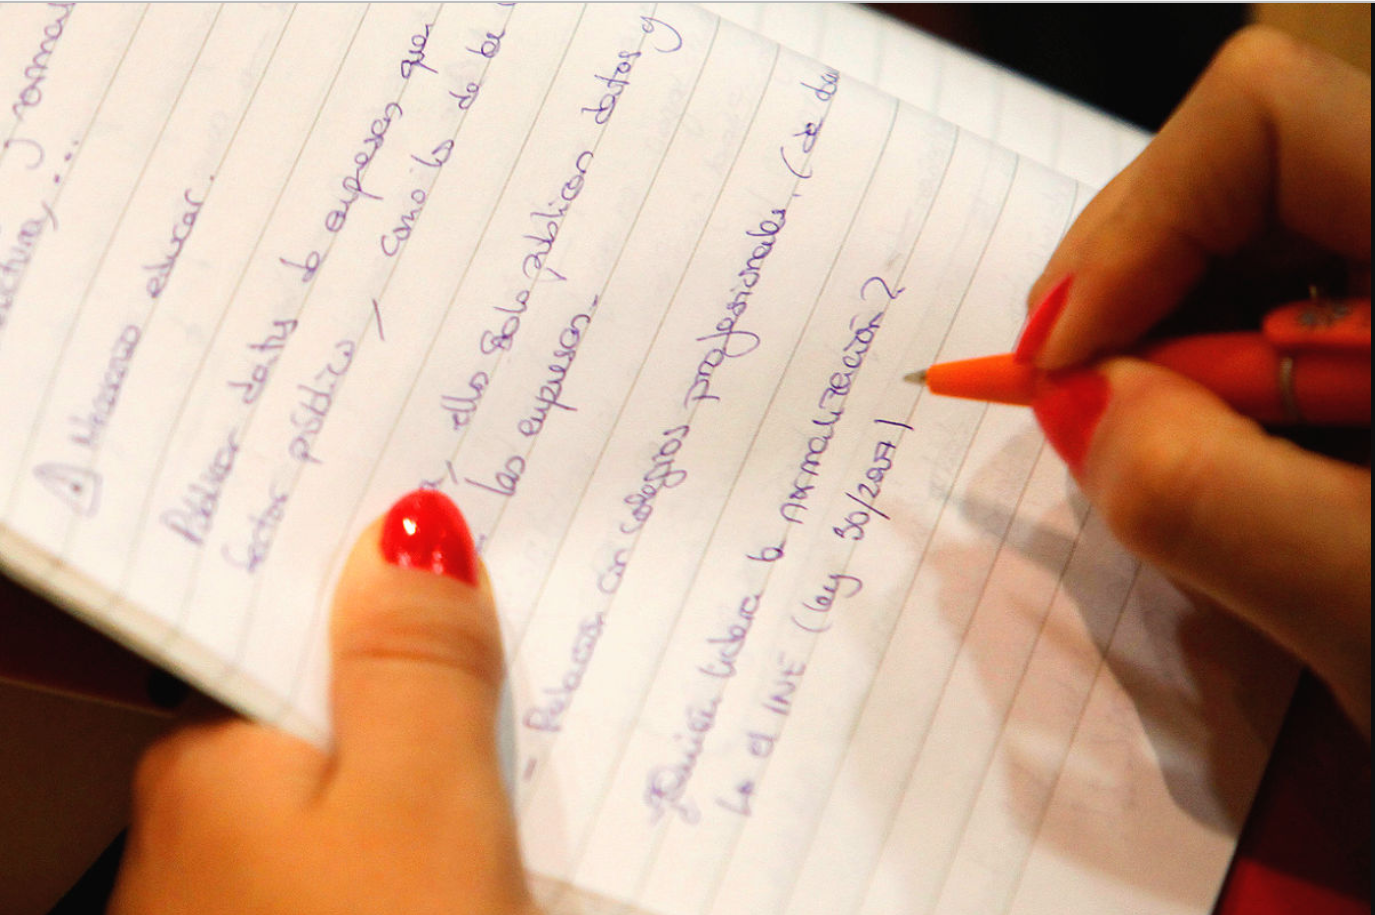 yormal
...
⚠ Necesario educar.
Publicar datos de empresas que
sector público, como los de la
ellos solo publican datos y
las empresas.
- Relación con colegios profesionales. (de da
¿Quién lidera la normalización?
La el INE (ley 30/2007)